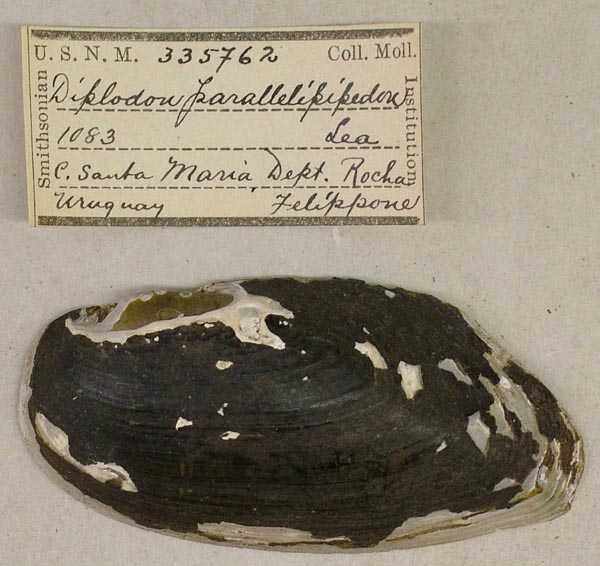 U. S. N. M. 335762 Coll. Moll.
Smithsonian
Institution
Diplodon parallelipipedon
1083 Lea
C. Santa Maria, Dept. Rocha,
Uruguay Felippone